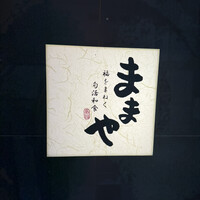 ままや
福をまねく
旬活和食